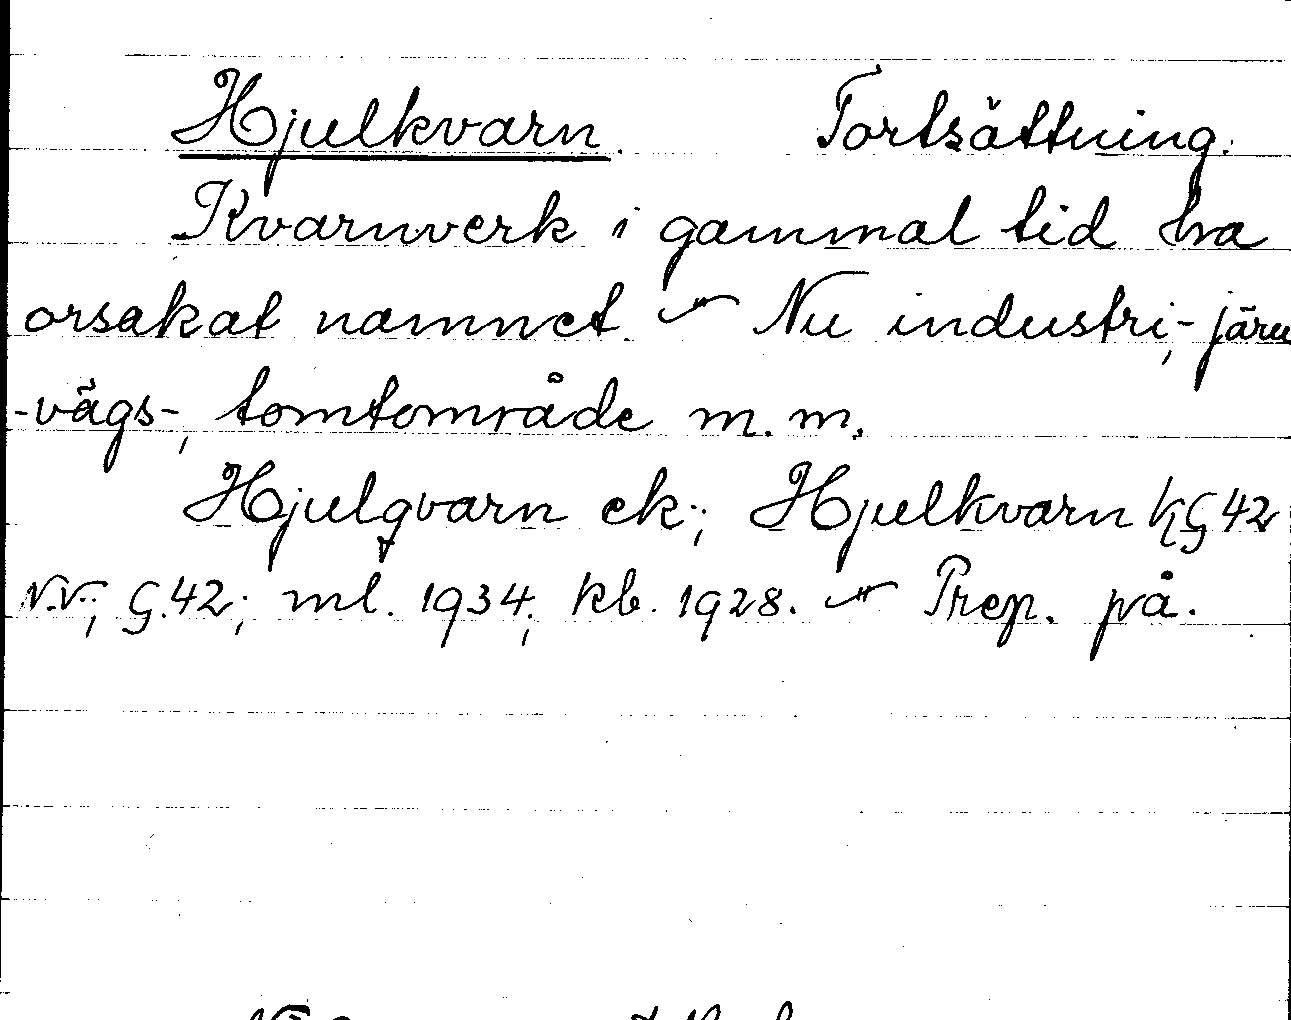 Hjulkvarn. Fortsättning.
Kvarnverk i gammal tid ha
orsakat namnet. - Nu industri-, järn
-vägs-, tomtområde m.m.
Hjulqvarn ek.; Hjulkvarn kG 42
N.V.; G.42; ml. 1934; kb. 1928. - Prep. på.